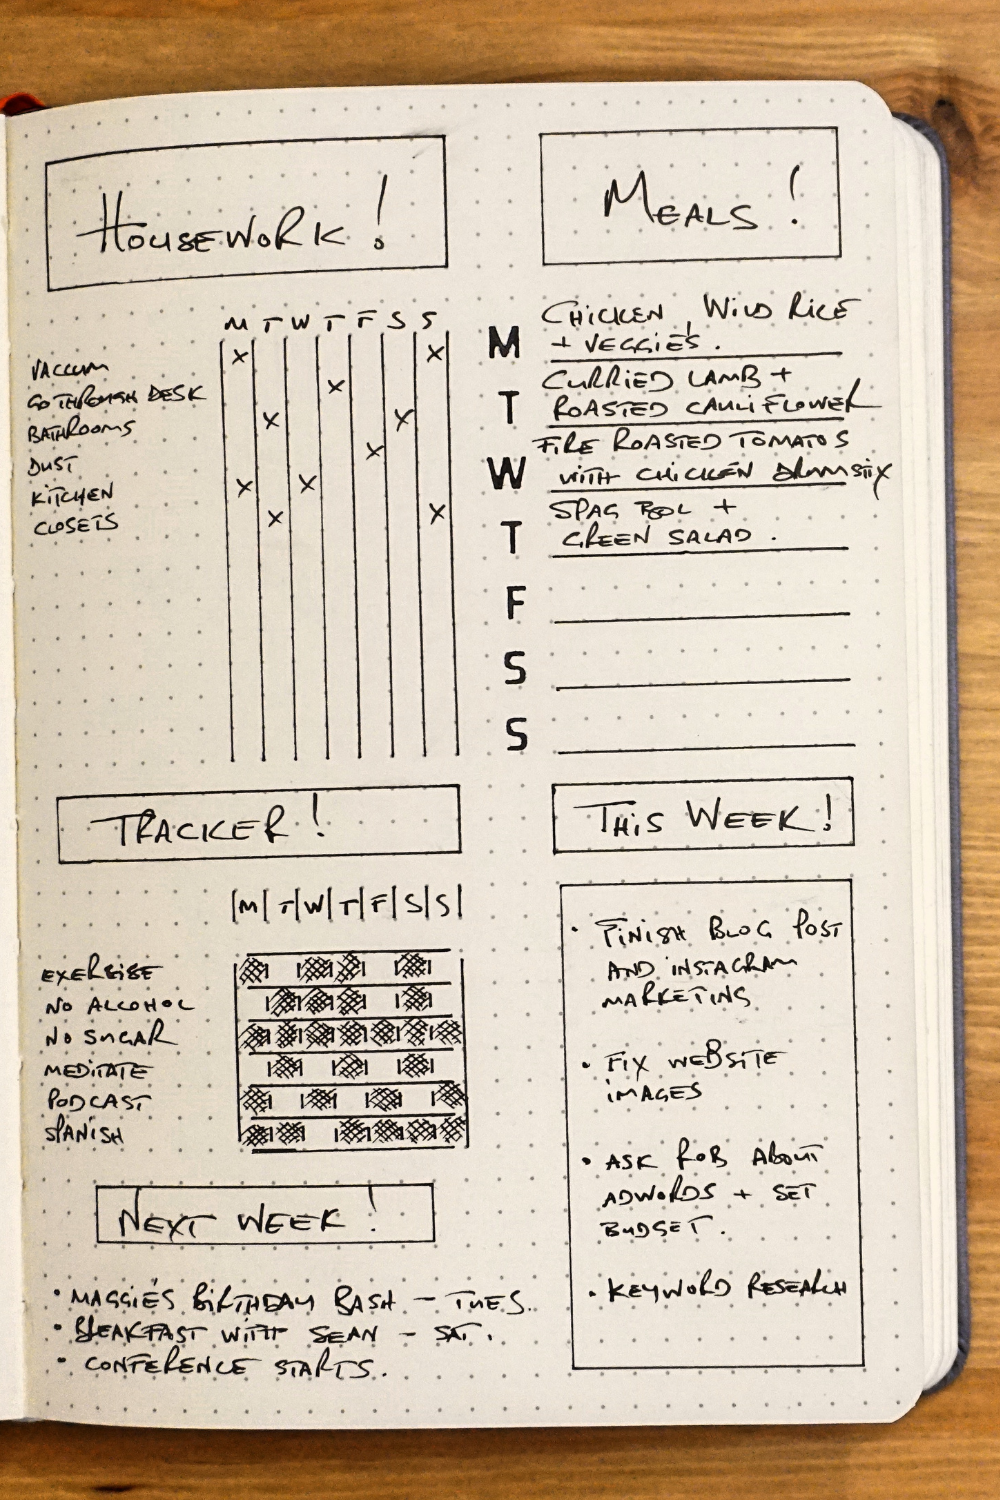 HOUSEWORK!
M T W T F S S
VACCUM X X
GO THROUGH DESK X
BATHROOMS X X
DUST X
KITCHEN X X
CLOSETS X X
MEALS!
M CHICKEN, WILD RICE
+ VEGGIES.
T CURRIED LAMB +
ROASTED CAULIFLOWER
W FIRE ROASTED TOMATOS
WITH CHICKEN DRUMSTIX
T SPAG BOL +
GREEN SALAD.
F
S
S
TRACKER!
|M|T|W|T|F|S|S|
EXERSISE
NO ALCOHOL
NO SUGAR
MEDITATE
PODCAST
SPANISH
THIS WEEK!
• FINISH BLOG POST
AND INSTAGRAM
MARKETING
• FIX WEBSITE
IMAGES
• ASK ROB ABOUT
ADWORDS + SET
BUDGET.
• KEYWORD RESEARCH
NEXT WEEK!
• MAGGIE'S BIRTHDAY BASH - TUES.
• BREAKFAST WITH SEAN - SAT.
• CONFERENCE STARTS.